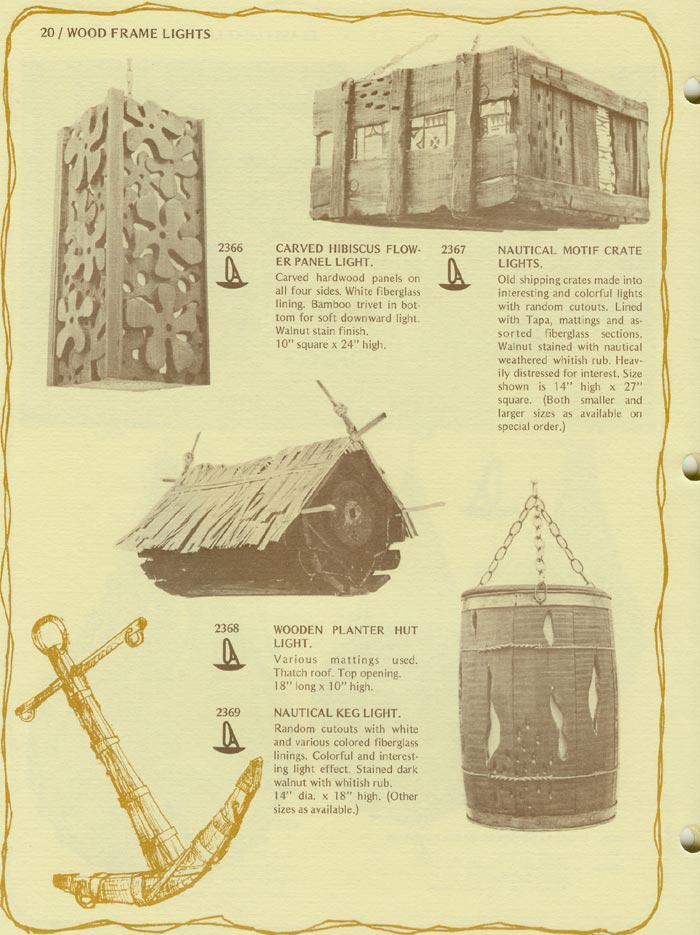 20 / WOOD FRAME LIGHTS
2366
CARVED HIBISCUS FLOW-
ER PANEL LIGHT.
Carved hardwood panels on
all four sides. White fiberglass
lining. Bamboo trivet in bot-
tom for soft downward light.
Walnut stain finish.
10" square x 24" high.
2367
NAUTICAL MOTIF CRATE
LIGHTS.
Old shipping crates made into
interesting and colorful lights
with random cutouts. Lined
with Tapa, mattings and as-
sorted fiberglass sections.
Walnut stained with nautical
weathered whitish rub. Heav-
ily distressed for interest. Size
shown is 14" high x 27"
square. (Both smaller and
larger sizes as available on
special order.)
2368
WOODEN PLANTER HUT
LIGHT.
Various mattings used.
Thatch roof. Top opening.
18" long x 10" high.
2369
NAUTICAL KEG LIGHT.
Random cutouts with white
and various colored fiberglass
linings. Colorful and interest-
ing light effect. Stained dark
walnut with whitish rub.
14" dia. x 18" high. (Other
sizes as available.)